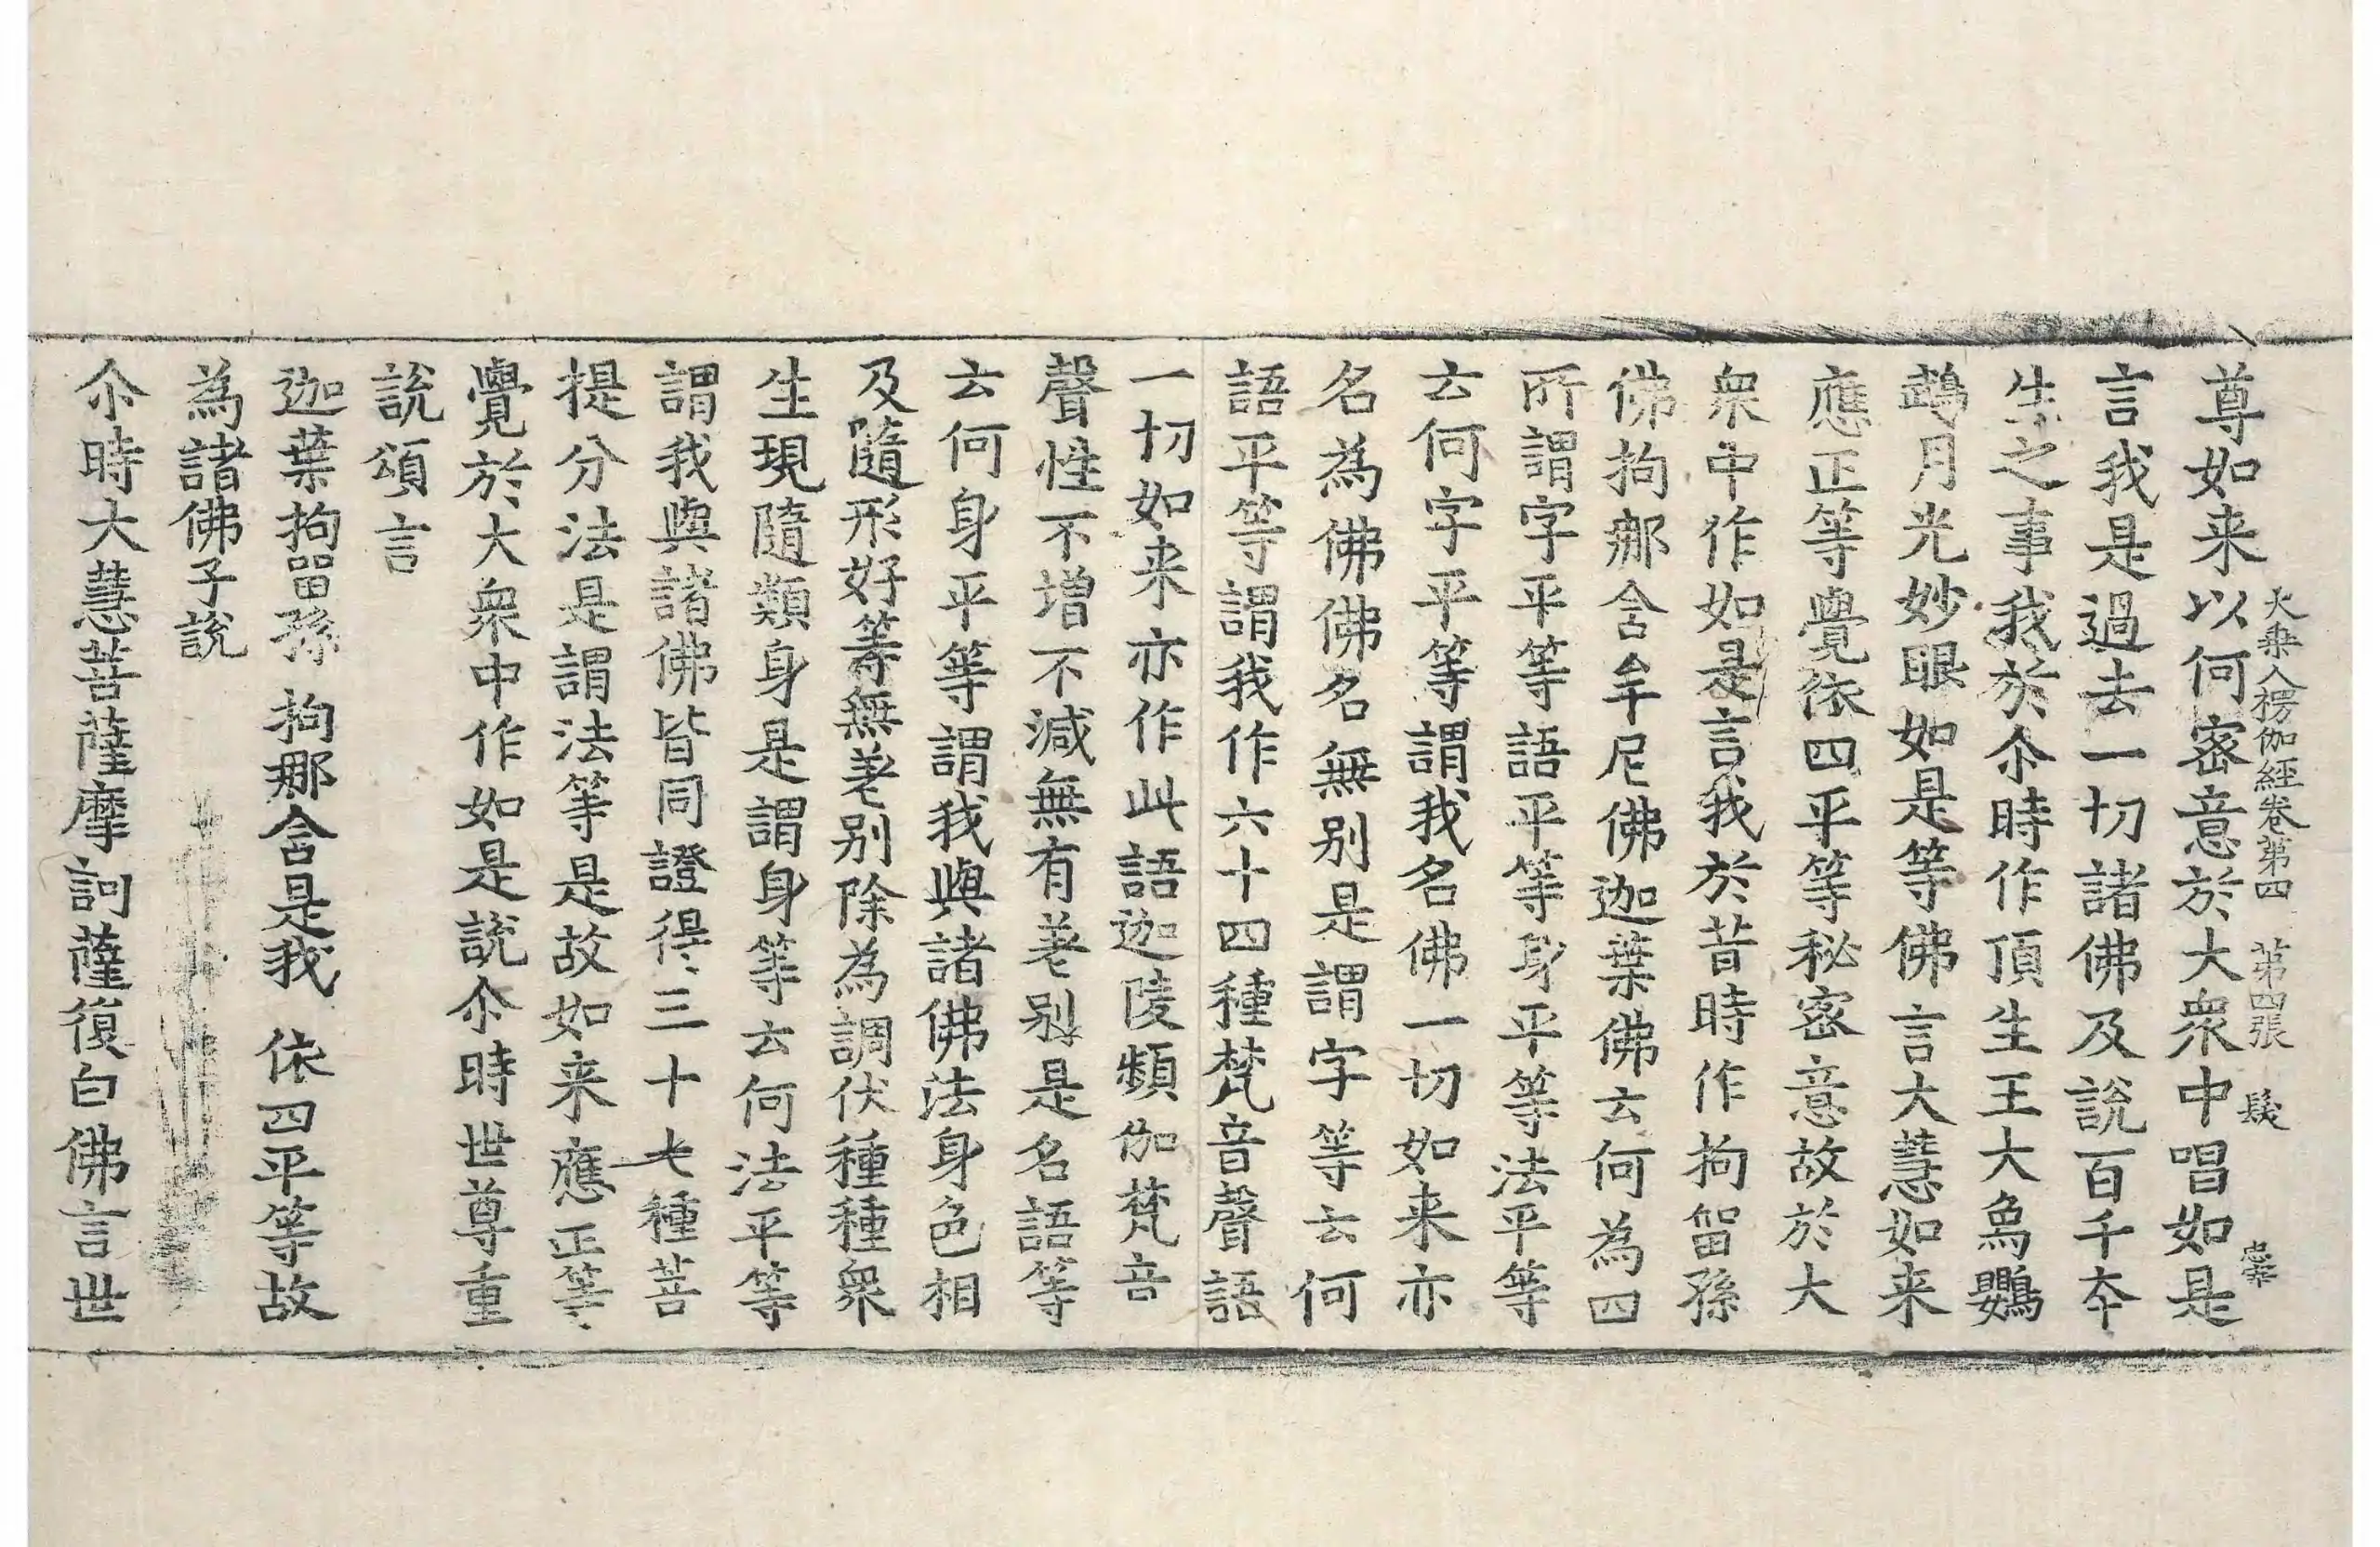 大乗入楞伽經卷第四 第四張 髮
尊如来以何密意於大衆中唱如是
言我是過去一切諸佛及說百千夲
生之事我於尒時作頂生王大鳥鸚
鵡月光妙眼如是等佛言大慧如来
應正等覺依四平等秘密意故於大
衆中作如是言我於昔時作拘留孫
佛拘那含牟尼佛迦葉佛云何為四
所謂字平等語平等身平等法平等
云何字平等謂我名佛一切如来亦
名為佛佛名無別是謂字等云何
語平等謂我作六十四種梵音聲語
一切如来亦作此語迦陵頻伽梵音
聲性不增不減無有差別是名語等
云何身平等謂我與諸佛法身色相
及隨形好等無差別除為調伏種種衆
生現隨類身是謂身等云何法平等
謂我與諸佛皆同證得三十七種菩
提分法是謂法等是故如来應正等
覺於大衆中作如是說尒時世尊重
說頌言
迦葉拘留孫 拘那含是我 依四平等故
為諸佛子說
尒時大慧菩薩摩訶薩復白佛言世